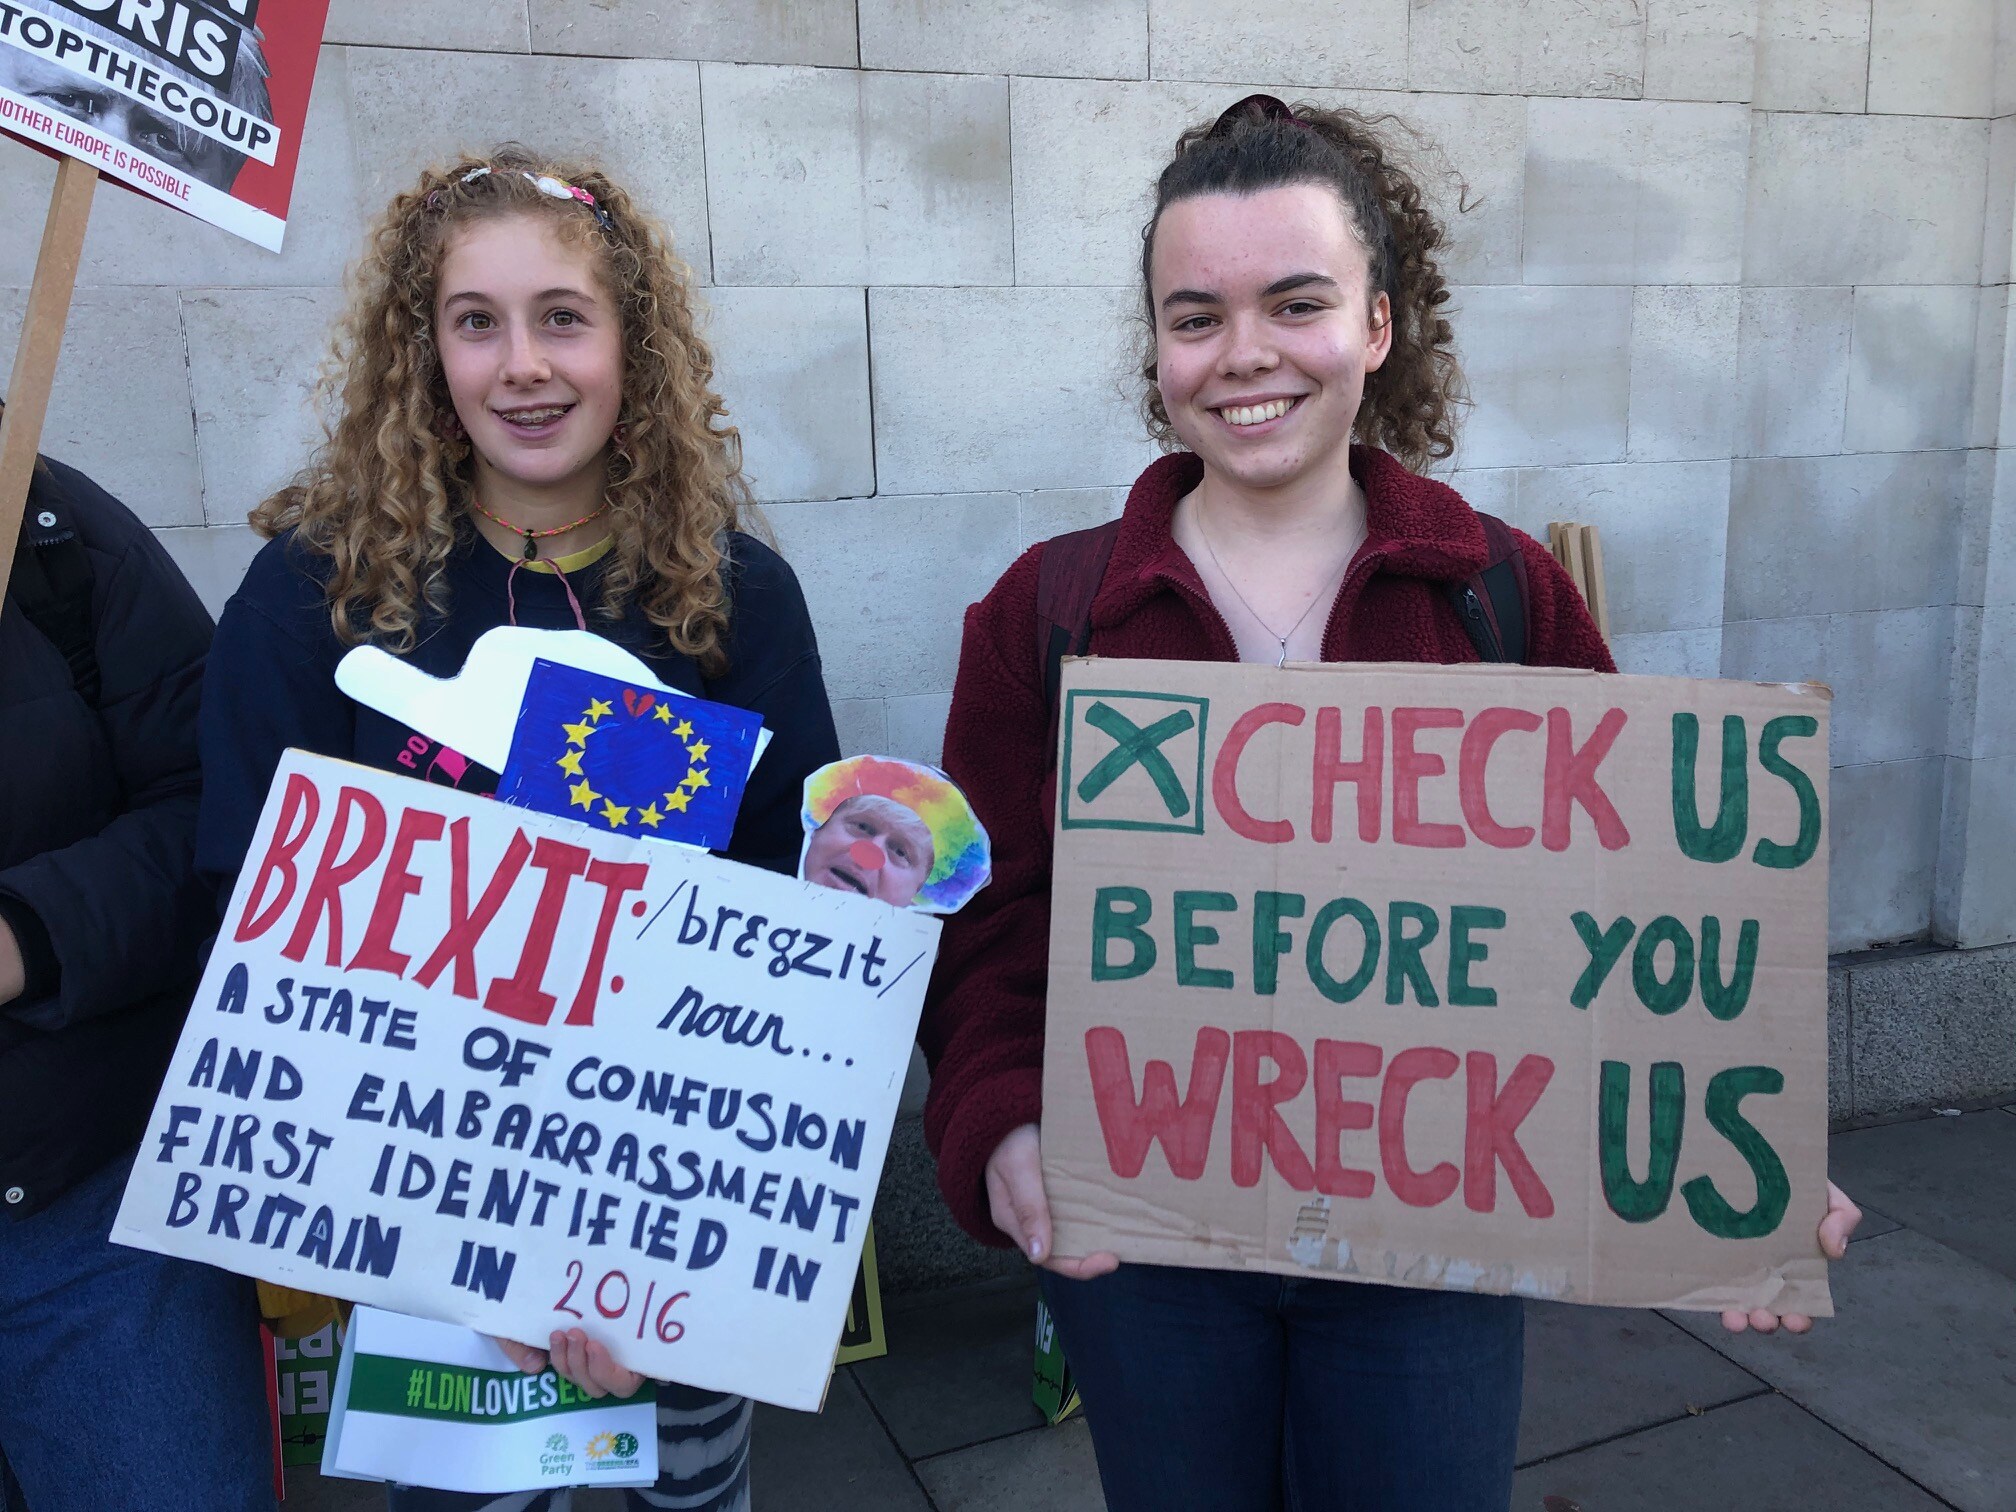 ORIS
STOPTHECOUP
OTHER EUROPE IS POSSIBLE
BREXIT: /brɛgzit/
noun...
A STATE OF CONFUSION
AND EMBARRASSMENT
FIRST IDENTIFIED IN
BRITAIN IN 2016
#LDNLOVES
Green
Party
CHECK US
BEFORE YOU
WRECK US